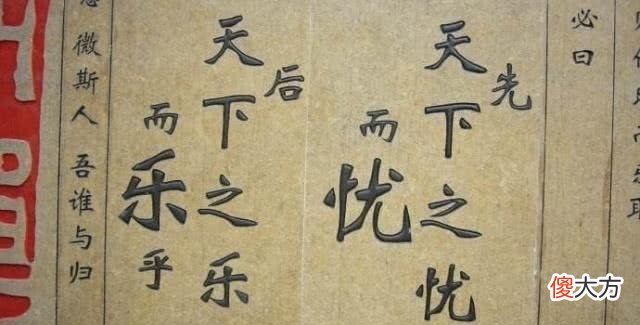 必曰
先
天下之忧
而忧
后
天下之乐
而乐乎
微斯人 吾谁与归
傻大方